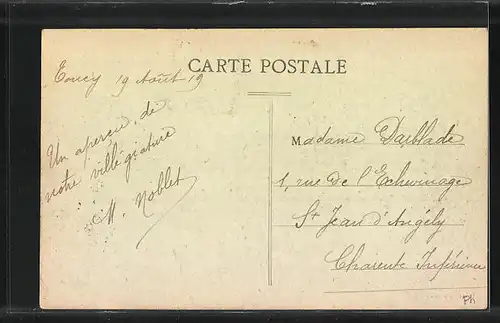 CARTE POSTALE
Toucy 19 Août 19
Un aperçu de
notre villégiature
M. Noblet
Madame Darblade
1, rue de l'Echevinage
St Jean d'Angély
Charente Inférieure
Ph